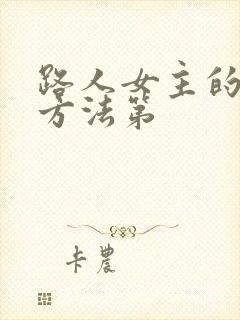 路人女主的
方法第
卡農